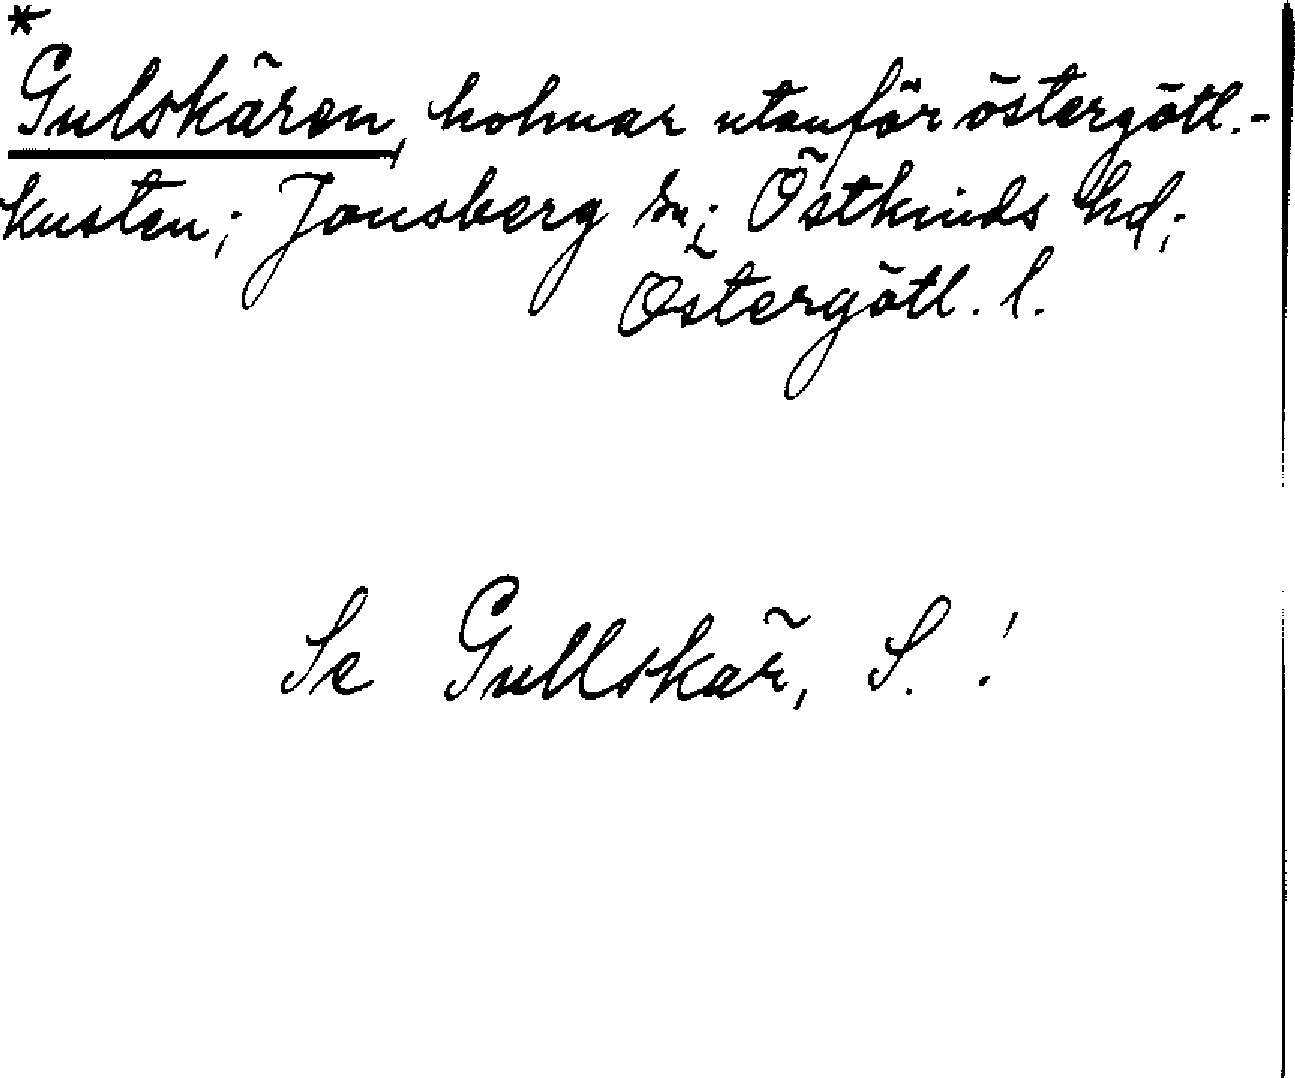 *
Gulskären, holmar utanför östergötl.-
kusten; Jonsberg sn; Östkinds hd;
Östergötl. l.
Se Gullskär, S. !